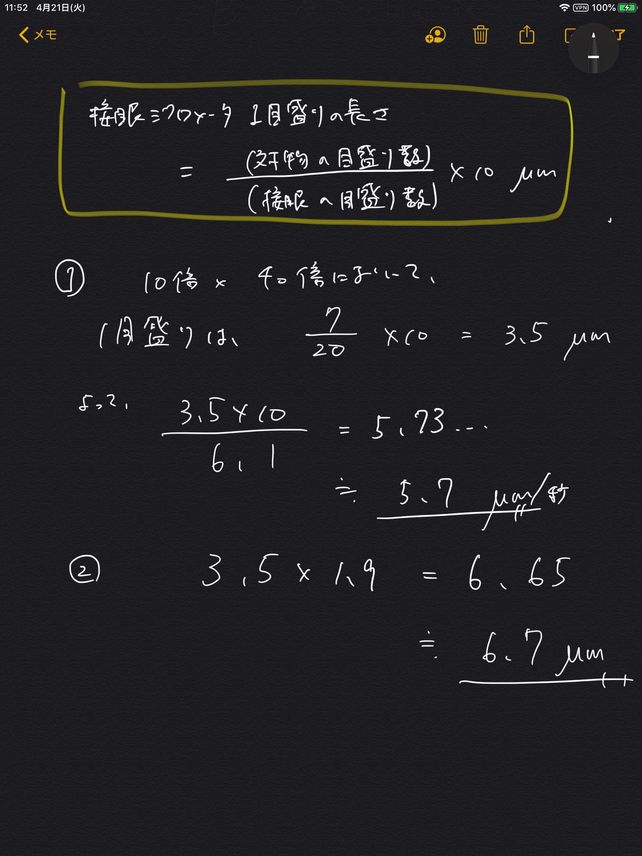 11:52 4月21日(火)
VPN 100%
メモ
了
接眼ミクロメータ 1目盛りの長さ
= (対物の目盛り数)/(接眼の目盛り数) × 10 μm
① 10倍 × 40倍において、
1目盛りは、 7/20 × 10 = 3.5 μm
よって、 3.5×10/6.1 = 5.73...
≒ 5.7 μm/秒
② 3.5 × 1.9 = 6.65
≒ 6.7 μm